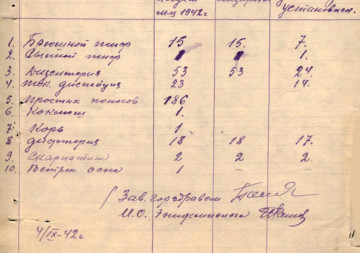 мц 1942г. установлен.
1. Брюшной тиф 15 15. 7.
2. Сыпной тиф 1.
3. Дизентерия 53 53 24.
4. дистпепсия 23 14.
5. Простых поносов 186
6. 1.
7. Корь 1.
8. Дифтерия 18 18 17.
9. Скарлатина 2 2 2.
10. Ветрян. оспа 1
Зав. горздравом
И.О. Эпидемиолога
4/IX-42г